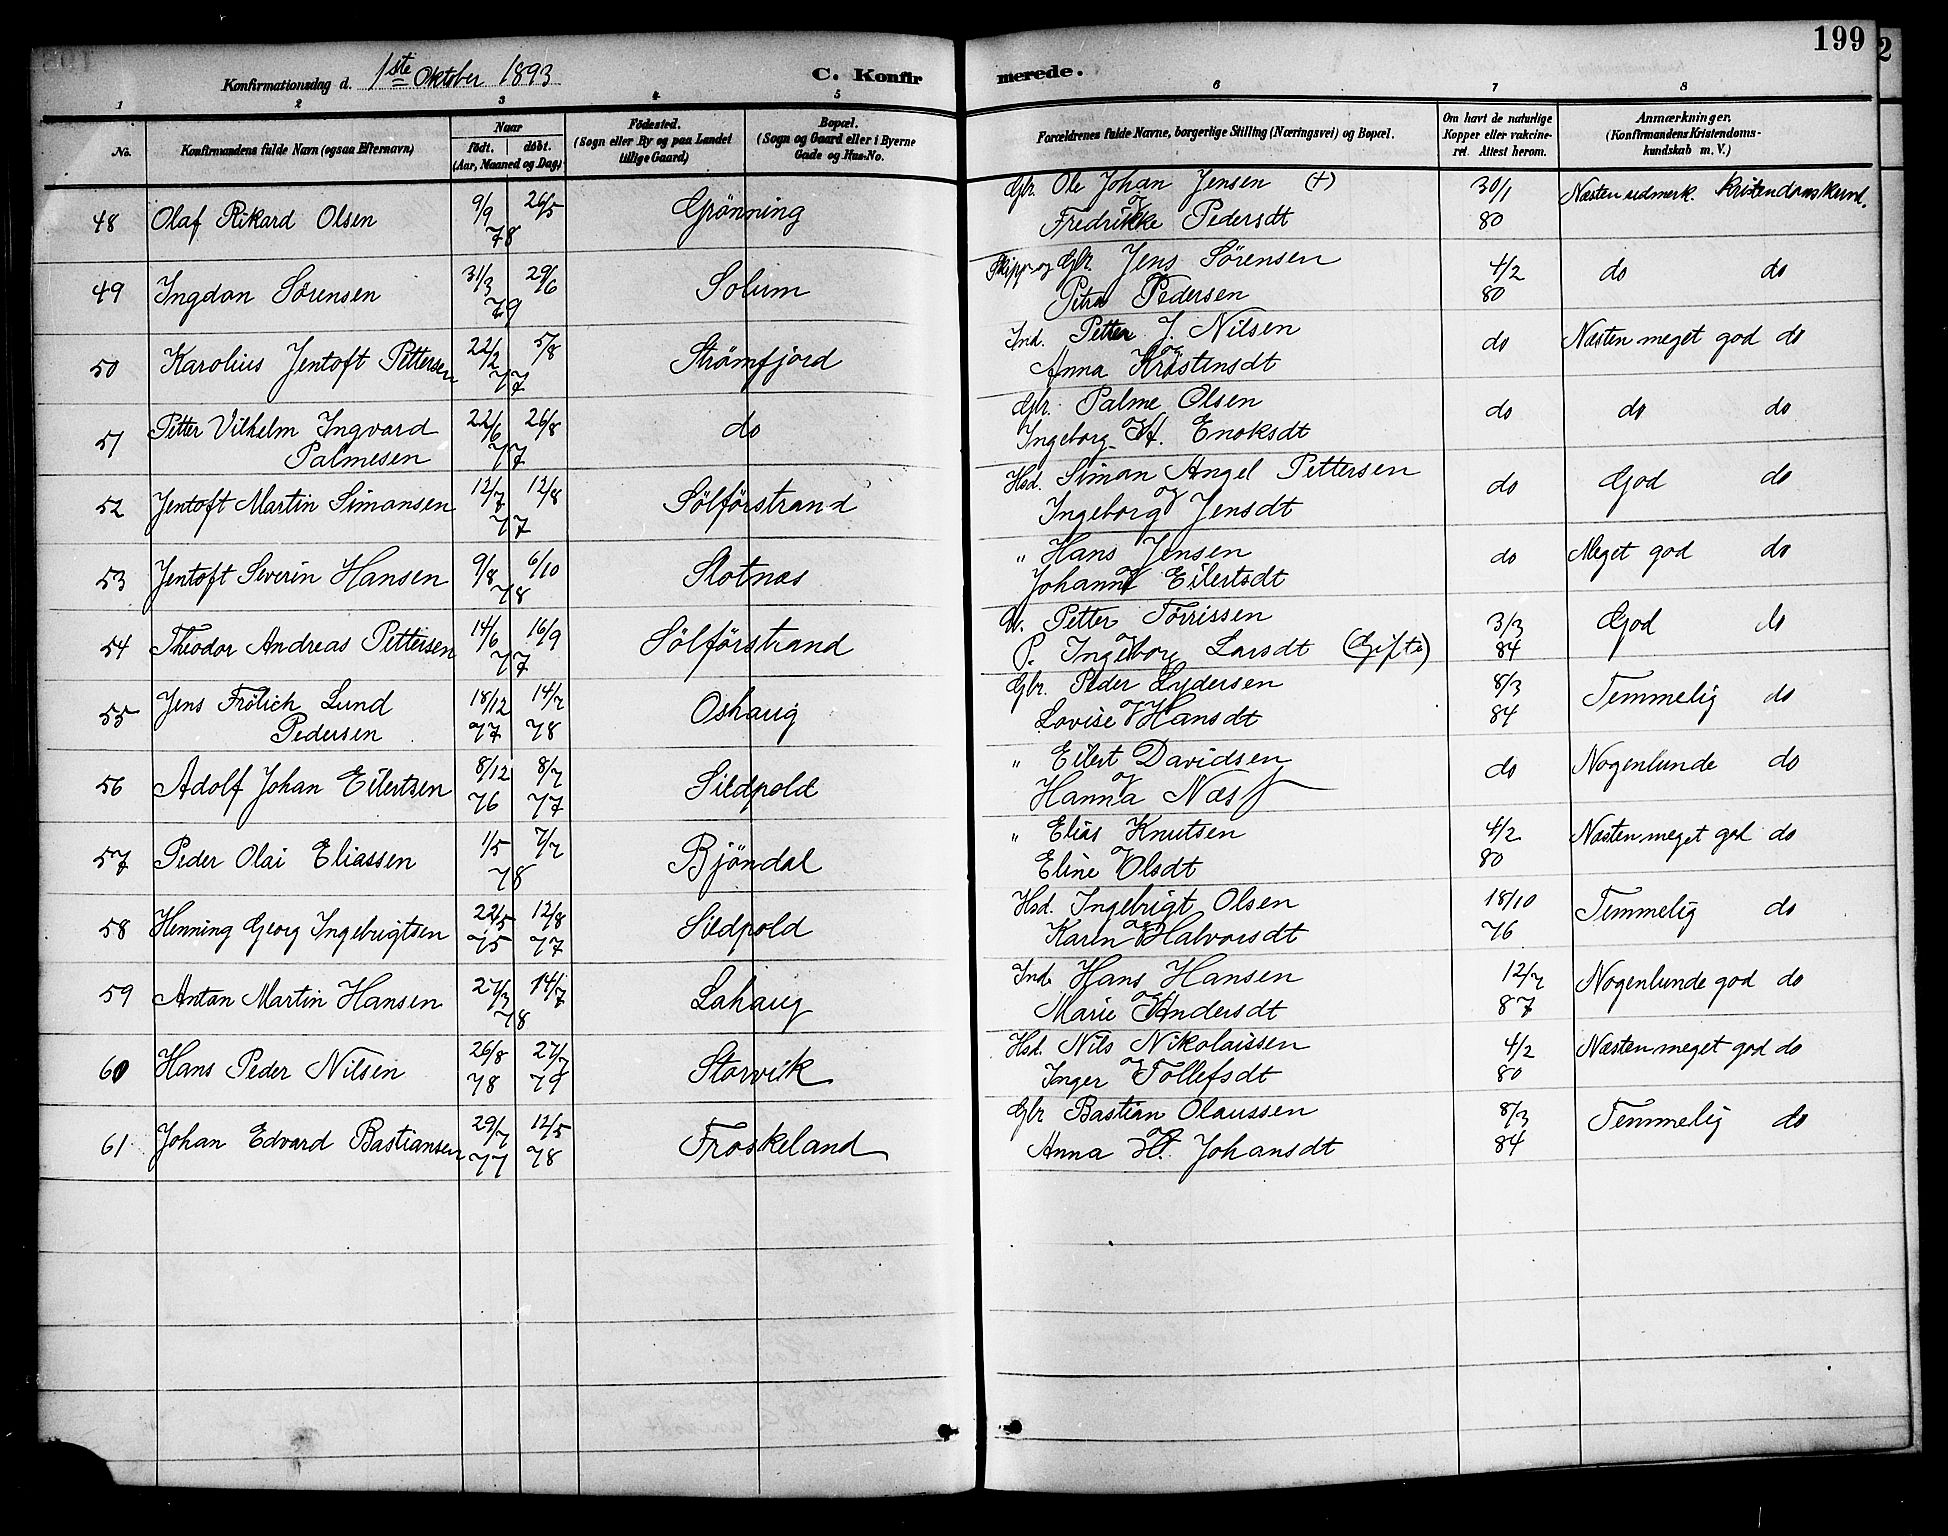 199
2
Konfirmationsdag d. 1ste Oktober 1893
C. Konfirmerede.
1 2 3 4 5 6 7 8
No.
Konfirmandens fulde Navn (ogsaa Efternavn)
Naar
født. døbt.
(Aar, Maaned og Dag)
Fødested.
(Sogn eller By og paa Landet
tillige Gaard)
Bopæl.
(Sogn og Gaard eller i Byerne
Gade og Hus-No.
Forældrenes fulde Navne, borgerlige Stilling (Næringsvei) og Bopæl.
Om havt de naturlige
Kopper eller vakcine-
ret. Attest herom.
Anmærkninger.
(Konfirmandens Kristendoms-
kundskab m. V.)
48 Olaf Rikard Olsen 9/9 26/5 78 Grönning Gbr. Ole Johan Jensen (+) 30/1 Næsten udmerk. Kristendomskund.
og Fredrikke Pedersdt 80
49 Ingdan Sørensen 31/3 29/6 79 Solum Skipp og Gbr. Jens Sørensen 4/2 do do
Petra Pedersen 80
50 Karolius Jentoft Pettersen 22/2 5/8 77 Strømfjord Ind. Petter J. Nilsen do Næsten meget god do
og Anna Kristensdt
51 Petter Vilhelm Ingvard 22/6 26/8 do Gbr. Palme Olsen do do do
Palmesen 77 Ingeborg og H. Enoksdt
52 Jentoft Martin Simonsen 12/7 12/8 77 Sölförstrand Hsd. Simon Angel Pettersen do God do
og Ingeborg Jensdt
53 Jentoft Severin Hansen 9/8 6/10 78 Slotnæs " Hans Jensen do Meget god do
og Johanna Eilertsdt
54 Theodor Andreas Pettersen 14/6 16/9 77 Sölförstrand U. Petter Torrissen 3/3 God do
P. Ingeborg og Larsdt (Gifte) 84
55 Jens Frölich Lund 18/12 14/7 Oshaug Gbr. Peder Lydersen 8/3 Temmelig do
Pedersen 77 78 Lovise og Hansdt 84
56 Adolf Johan Eilertsen 8/12 8/7 Sildpold " Eilert Davidsen do Nogenlunde do
76 77 og Hanna Næss
57 Peder Olai Eliassen 1/5 7/7 78 Bjöndal " Elias Knutsen 4/2 Næsten meget god do
og Eline Olsdt 80
58 Henning Georg Ingebrigtsen 22/5 12/8 Sildpold Hsd. Ingebrigt Olsen 18/10 Temmelig do
75 77 Karen og Halvorsdt 76
59 Anton Martin Hansen 27/3 14/7 78 Lahaug Ind. Hans Hansen 12/7 Nogenlunde god do
Marie og Andersdt 87
60 Hans Peder Nilsen 26/8 27/7 Storvik Hsd. Nils Nikolaissen 4/2 Næsten meget god do
78 79 Inger og Tollefsdt 80
61 Johan Edvard Bastiansen 29/7 12/5 Froskeland Gbr Bastian Olaussen 8/3 Temmelig do
77 78 Anna og H. Johansdt 84